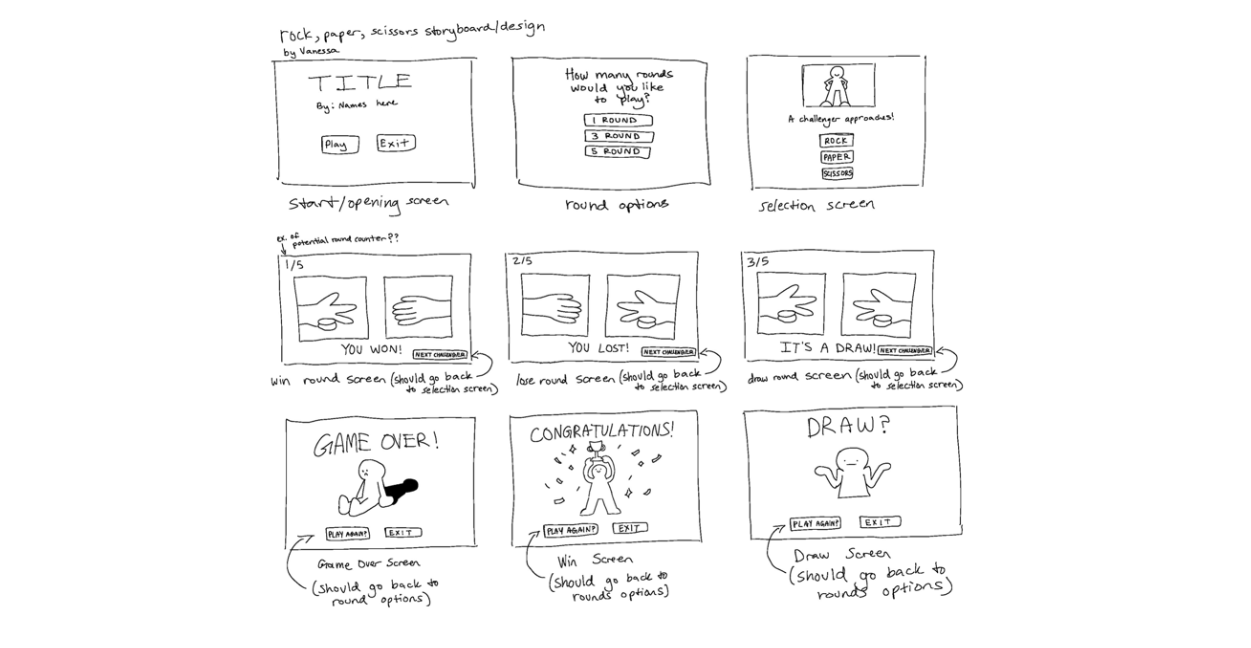 rock, paper, scissors storyboard/design
by Vanessa
TITLE
By: Names here
Play
Exit
Start/opening screen
How many rounds
would you like
to play?
1 ROUND
3 ROUND
5 ROUND
round options
A challenger approaches!
ROCK
PAPER
SCISSORS
selection screen
ex. of
potential round counter??
1/5
YOU WON!
NEXT CHALLENGER
win round screen (should go back
to selection screen)
2/5
YOU LOST!
NEXT CHALLENGER
lose round screen (should go back
to selection screen)
3/5
IT'S A DRAW!
NEXT CHALLENGER
draw round screen (should go back
to selection screen)
GAME OVER!
PLAY AGAIN?
EXIT
Game Over Screen
(should go back to
round options)
CONGRATULATIONS!
PLAY AGAIN?
EXIT
Win Screen
(should go back to
rounds options)
DRAW?
PLAY AGAIN?
EXIT
Draw Screen
(should go back to
rounds options)